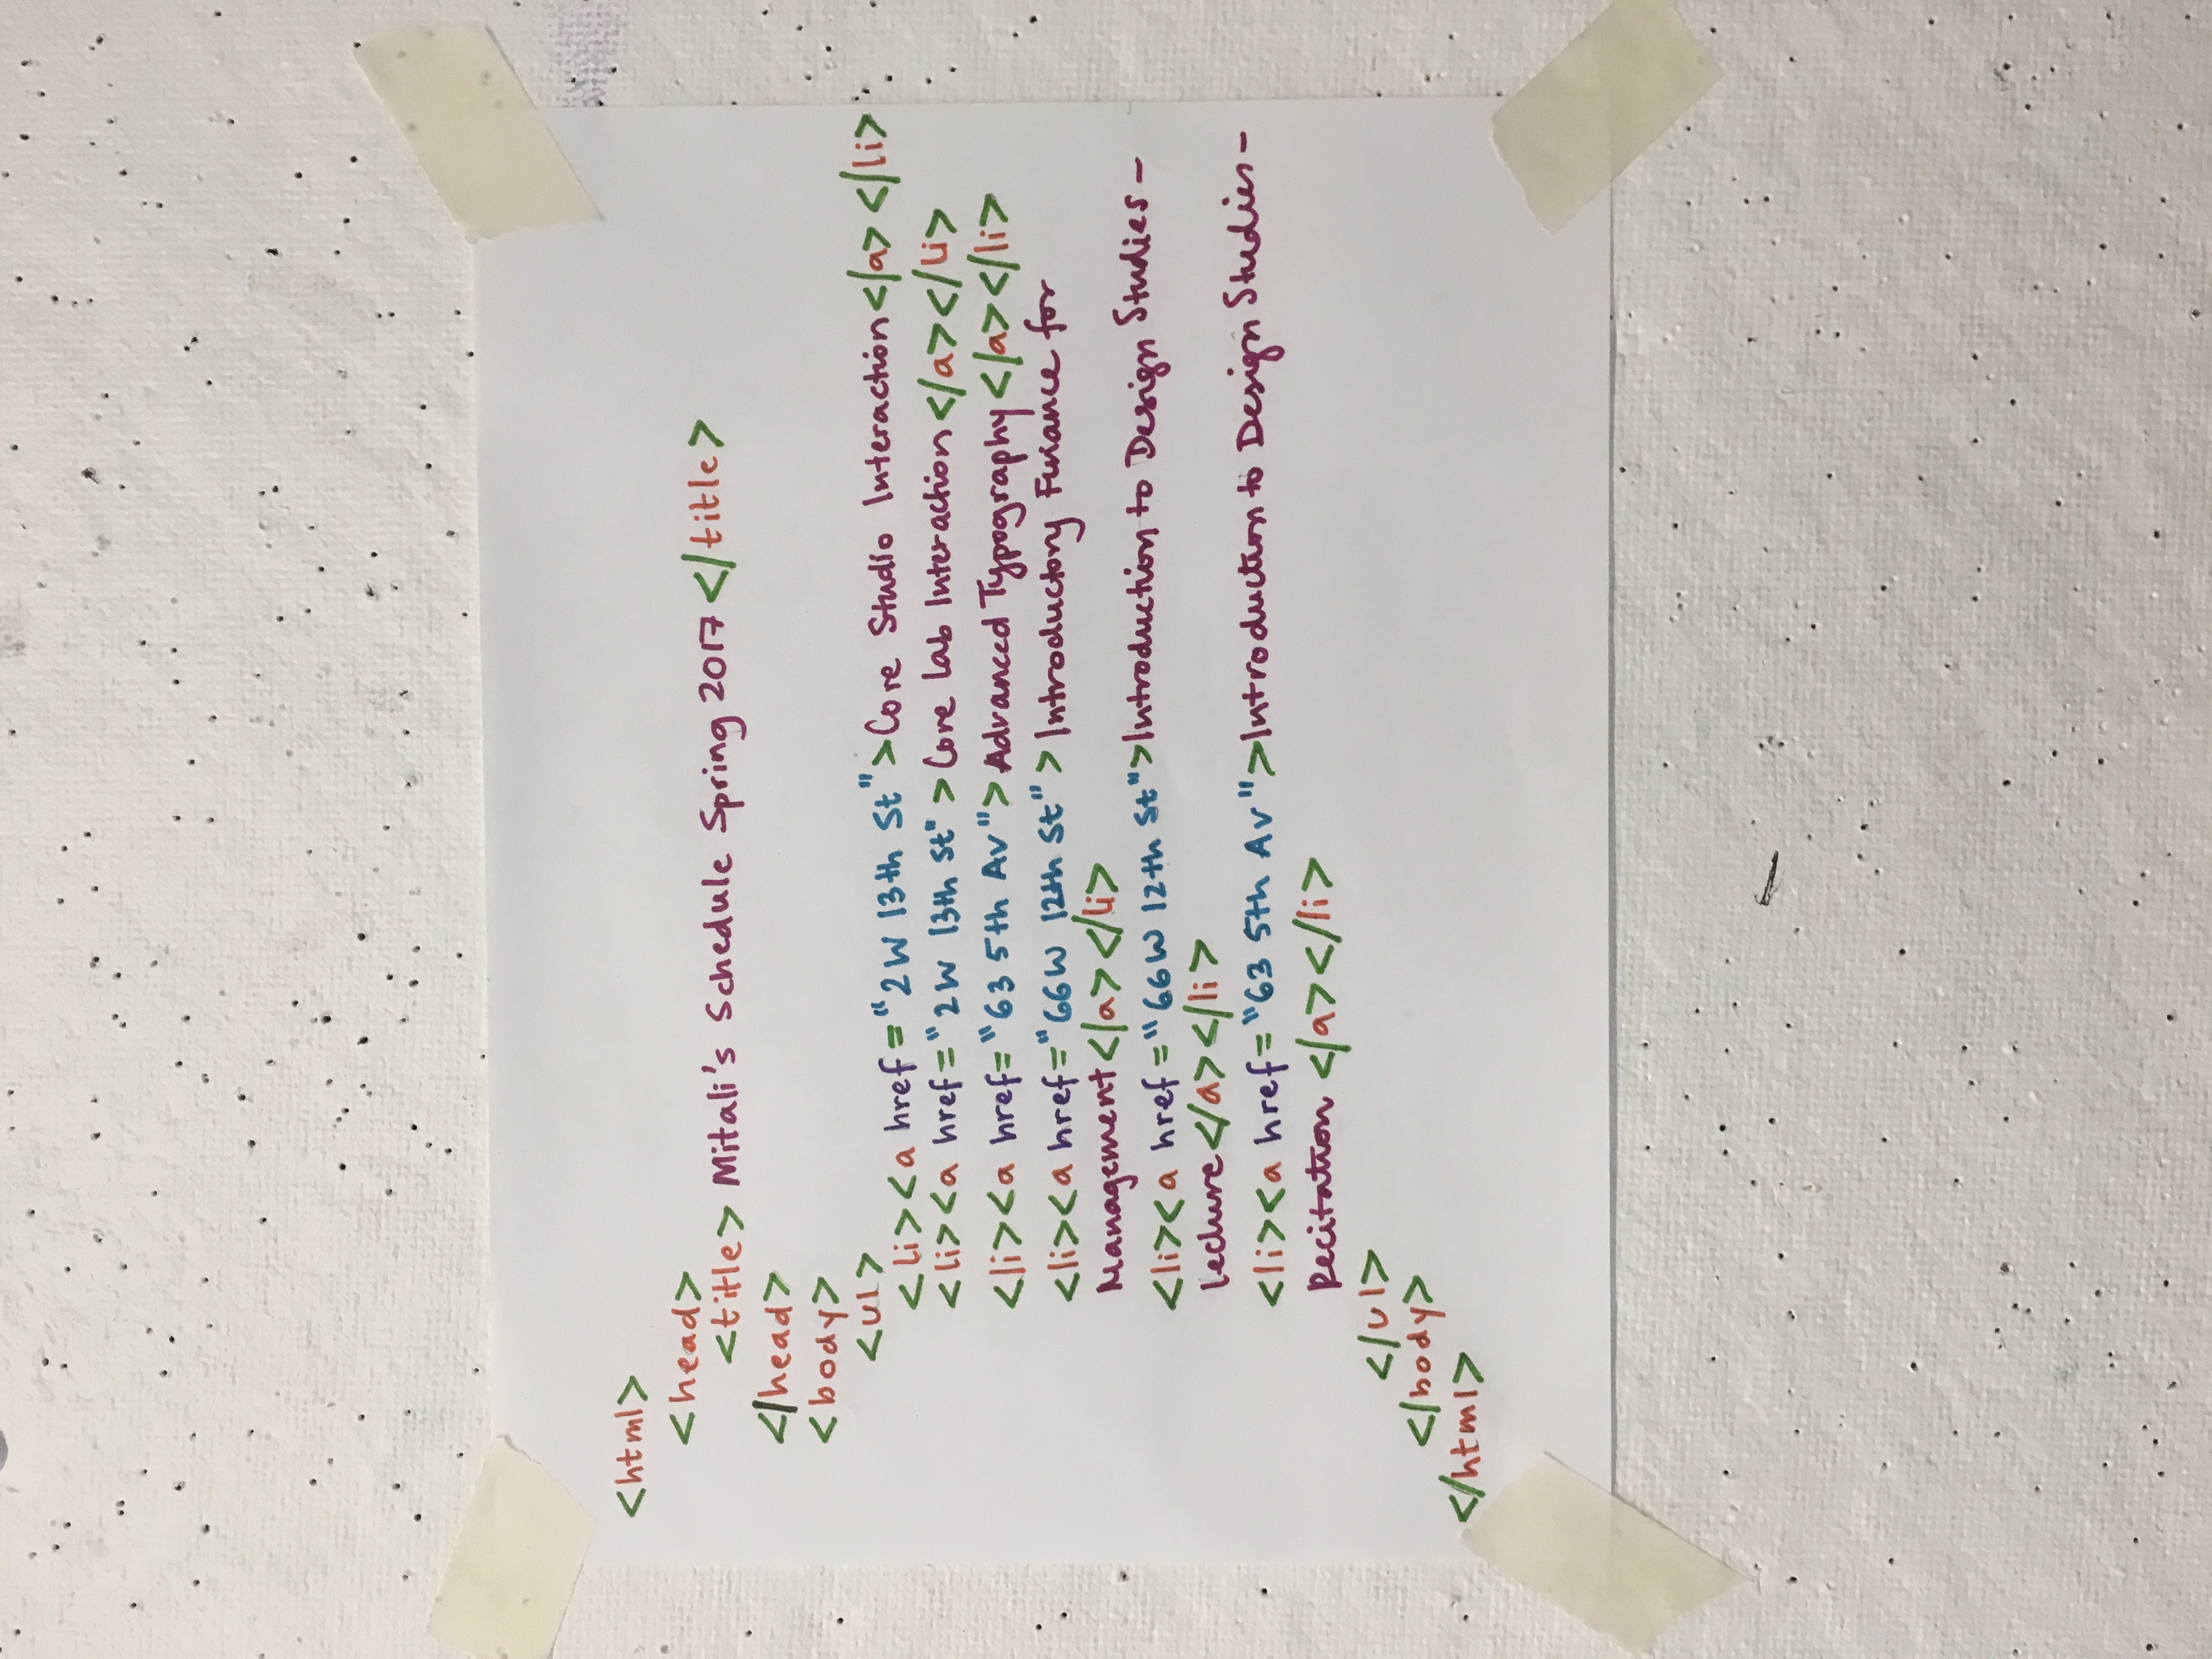 <html>
<head>
<title> Mitali's Schedule Spring 2017</title>
</head>
<body>
<ul>
<li><a href="2W 13th St">Core Studio Interaction</a></li>
<li><a href="2W 13th St">Core Lab Interaction</a></li>
<li><a href="63 5th Av">Advanced Typography</a></li>
<li><a href="66W 12th St">Introductory Finance for
Management</a></li>
<li><a href="66W 12th St">Introduction to Design Studies-
lecture</a></li>
<li><a href="63 5th Av">Introduction to Design Studies-
Recitation </a></li>
</ul>
</body>
</html>